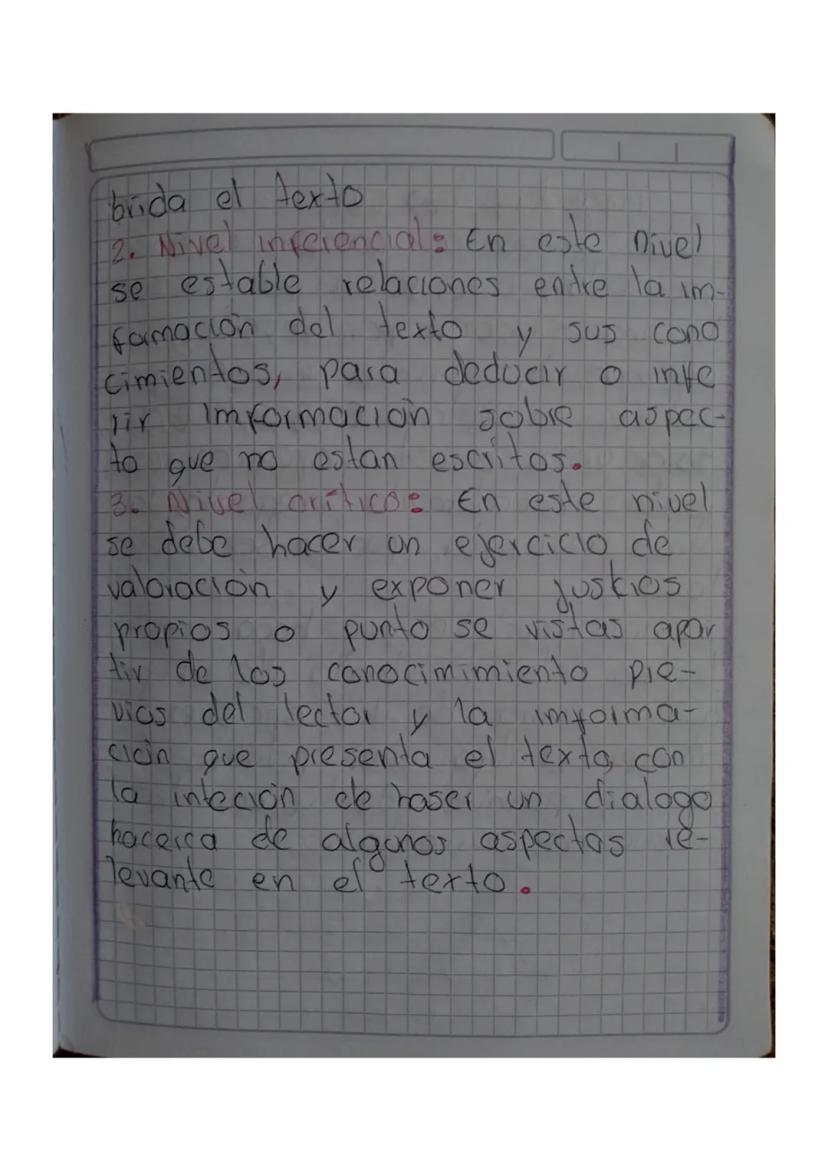 brida el texto
2. Nivel inferencial: En este nivel
se estable relaciones entre la im-
formación del texto y sus cono
cimientos, para deducir o infe
rir imformación sobre aspec-
to que no estan escritos.
3. Nivel crítico: En este nivel
se debe hacer un ejercicio de
valoración y exponer juskios
propios o punto se vistas apar
tir de los conocimimiento pre-
vios del lector y la imforma-
ción que presenta el texto, con
la inteción de haser un dialogo
hacerca de algunos aspectos re-
levante en el texto.